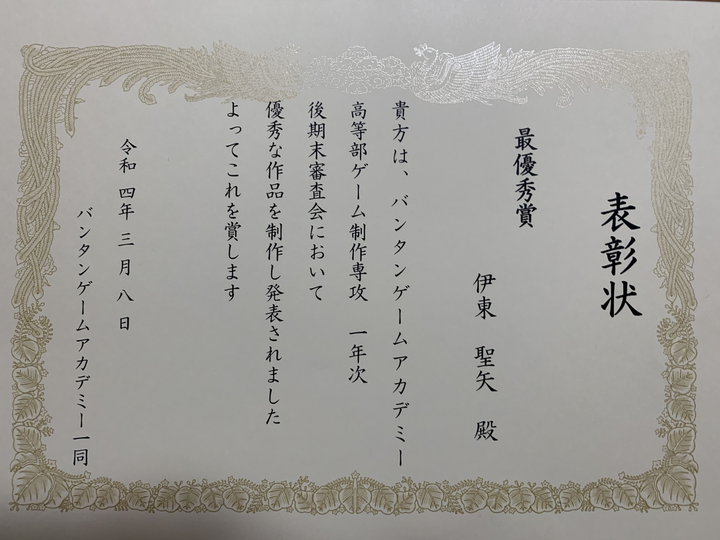 表彰状
最優秀賞
伊東　聖矢　殿
貴方は、バンタンゲームアカデミー
高等部ゲーム制作専攻　一年次
後期末審査会において
優秀な作品を制作し発表されました
よってこれを賞します
令和四年三月八日
バンタンゲームアカデミー一同